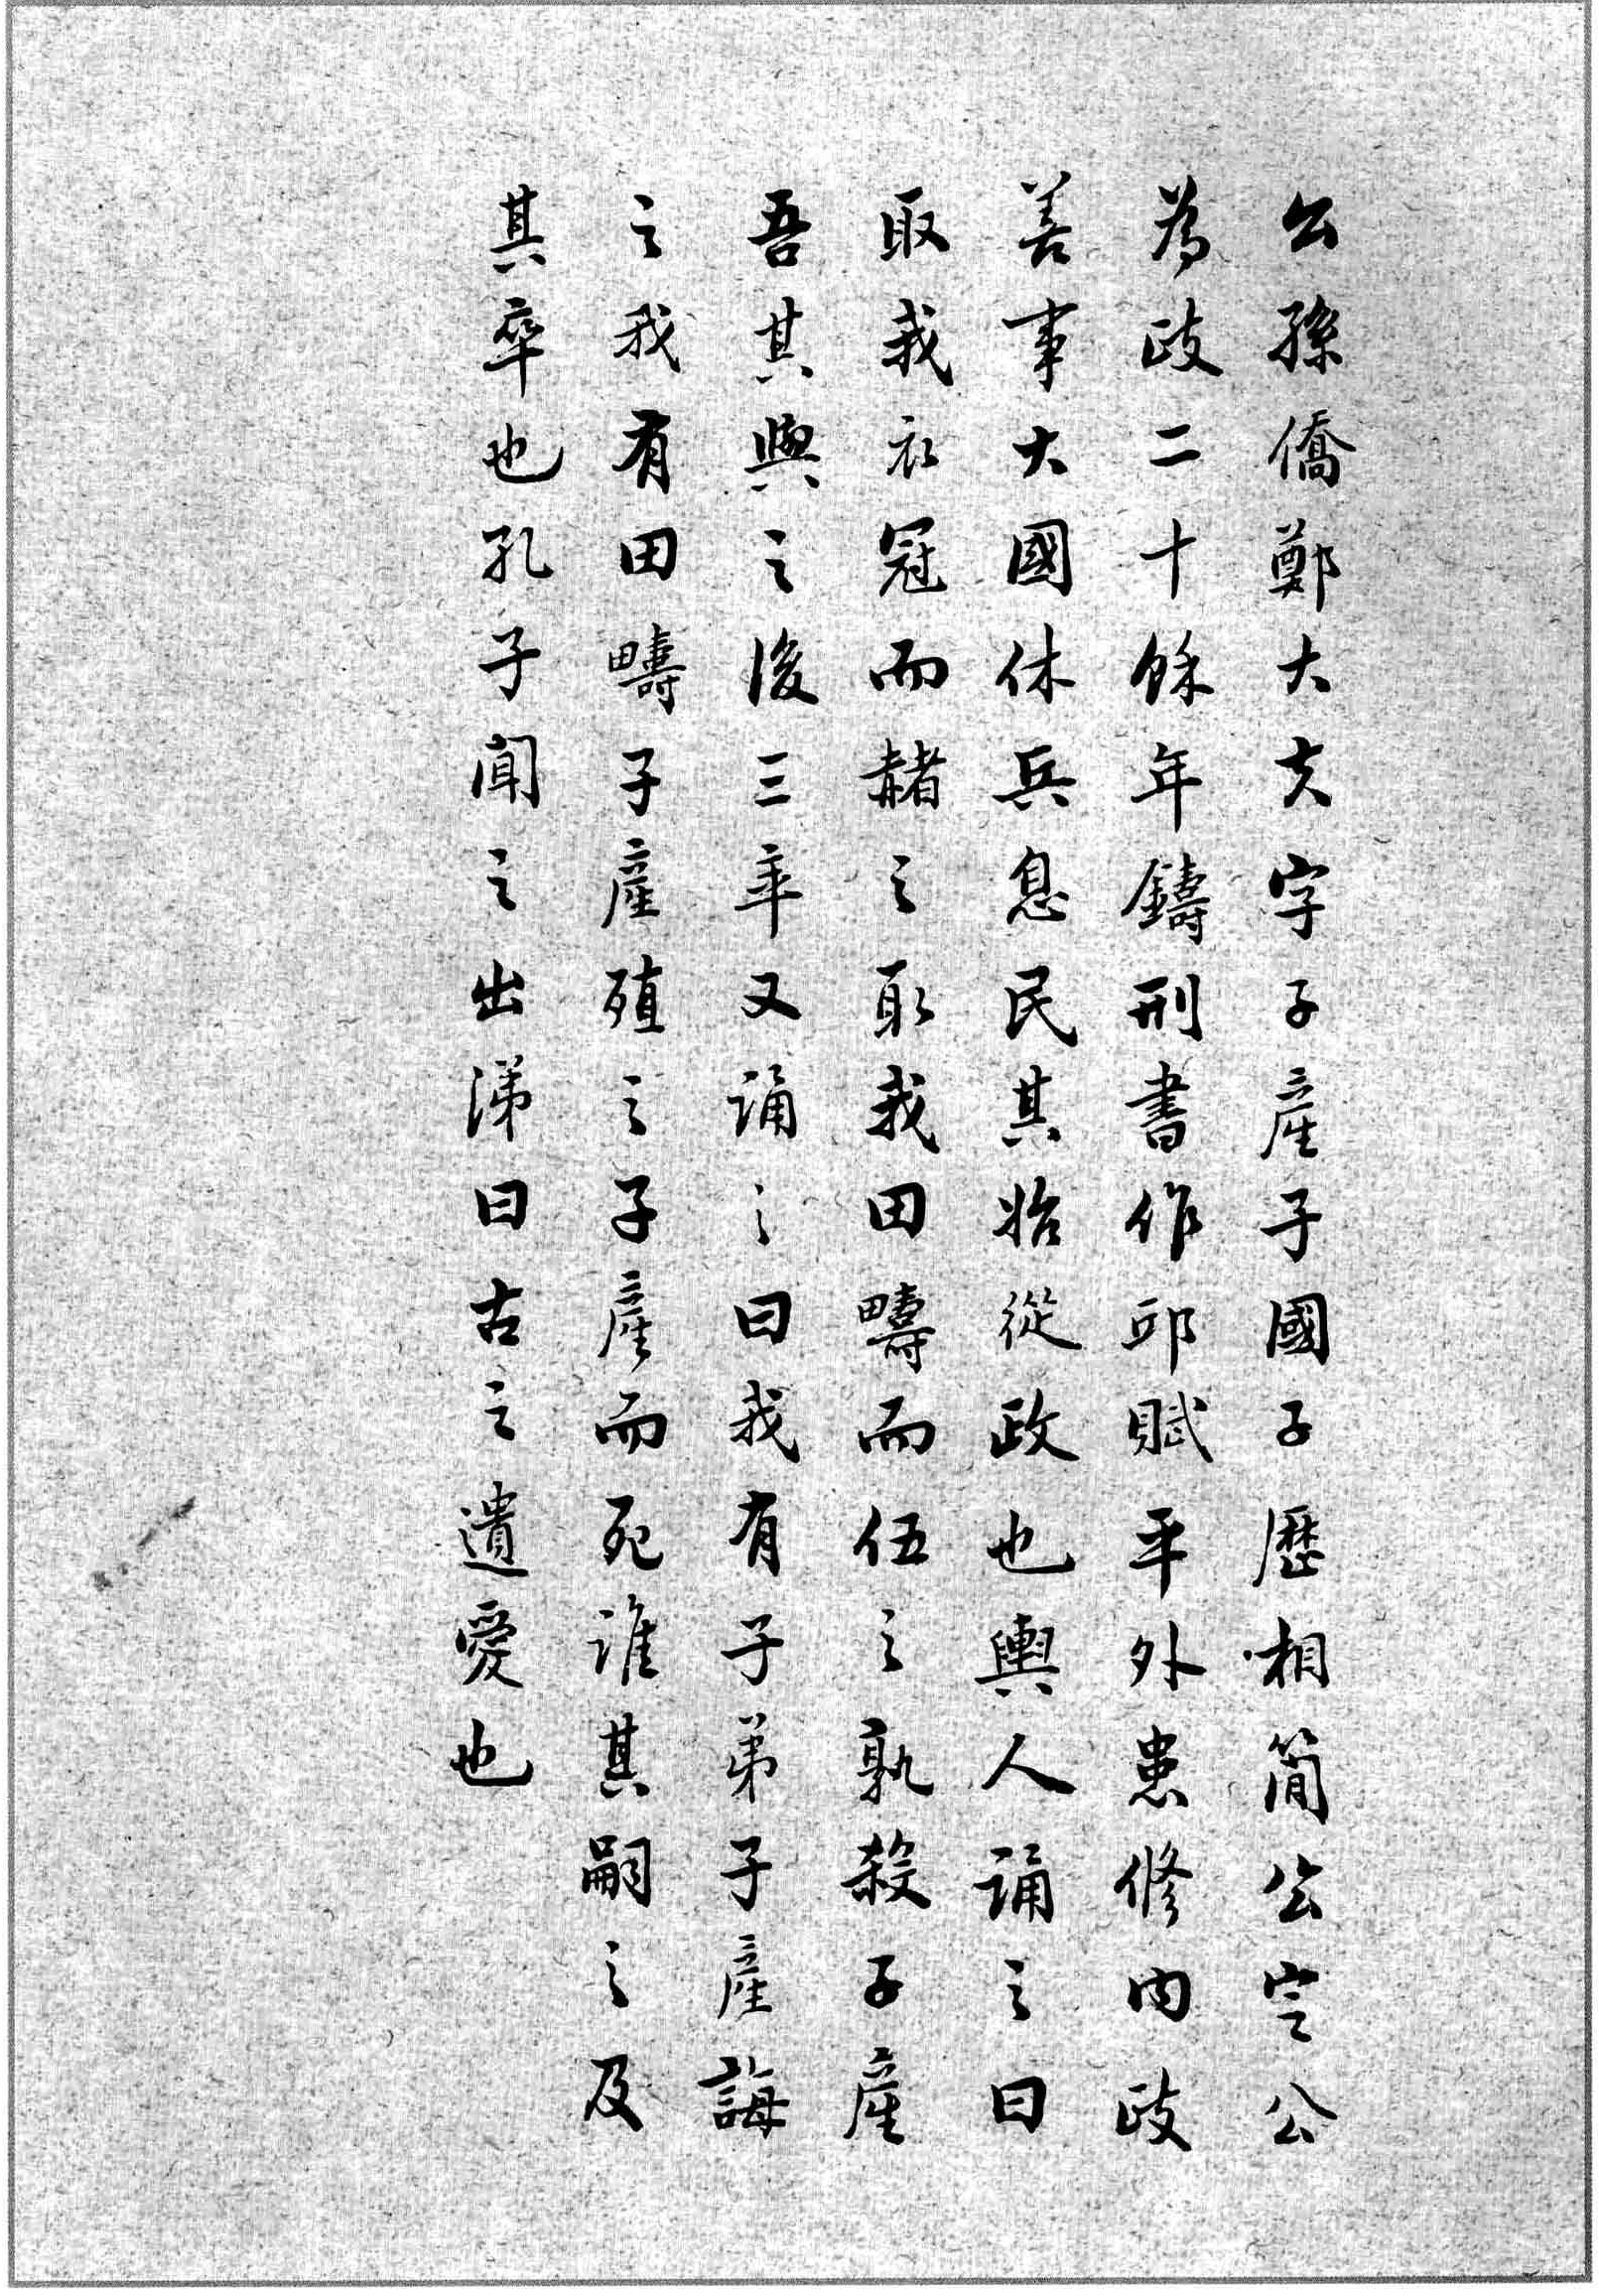 公孫僑鄭大夫字子產子國子歷相簡公定公
為政二十餘年鑄刑書作邱賦平外患修內政
善事大國休兵息民其始從政也輿人誦之曰
取我衣冠而赭之取我田疇而伍之孰殺子產
吾其與之後三年又誦之曰我有子弟子產誨
之我有田疇子產殖之子產而死誰其嗣之及
其卒也孔子聞之出涕曰古之遺愛也